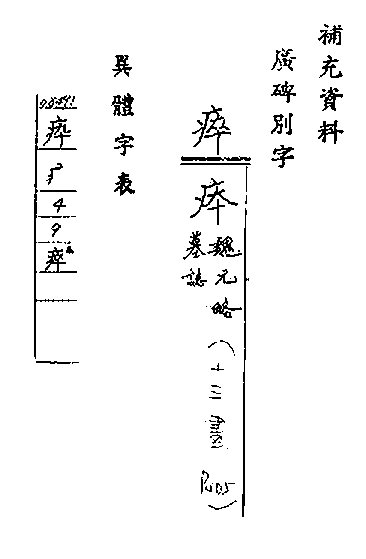 補充資料
廣碑別字
瘁
魏元略
墓誌
（十三畫
異體字表
疩
疒
4
9
瘁